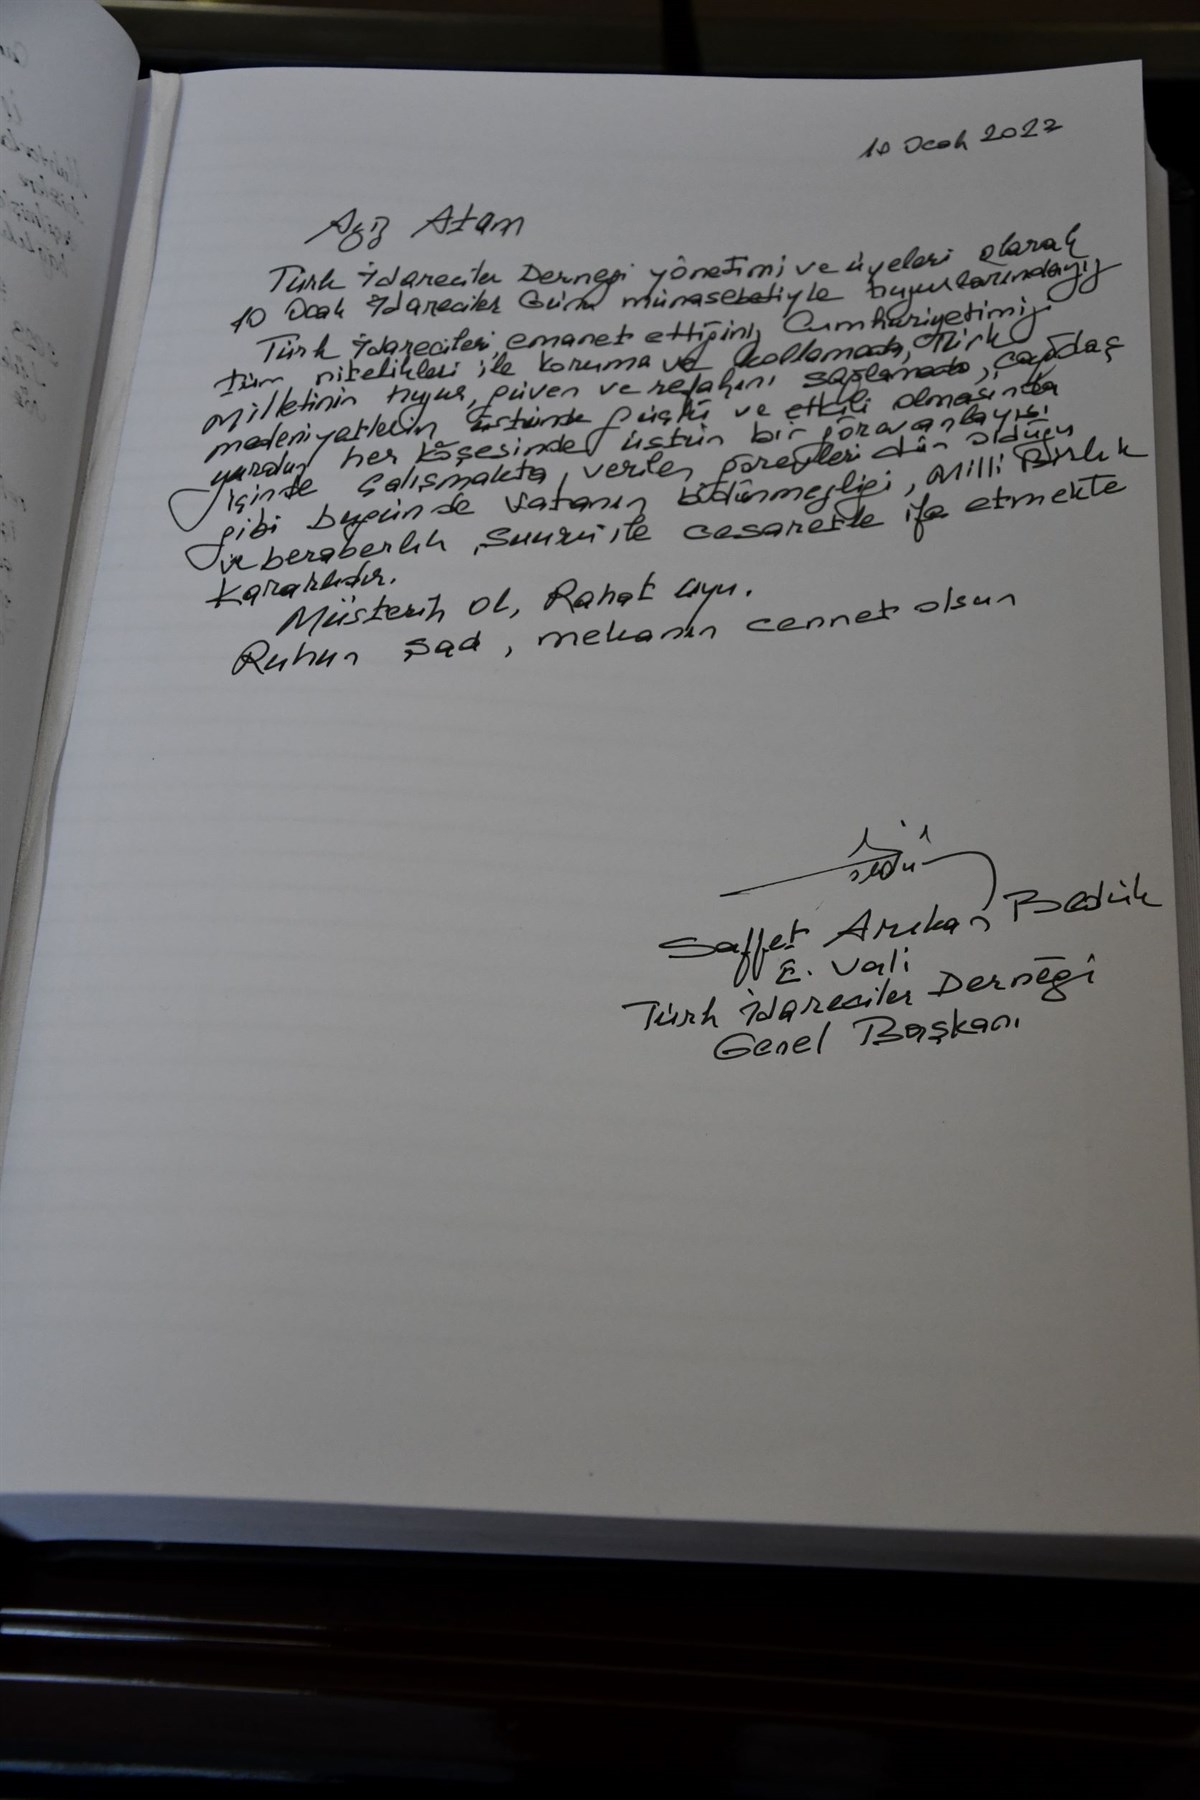 10 Ocak 2022
Aziz Atam
Türk İdareciler Derneği yönetimi ve üyeleri olarak
10 Ocak İdareciler Günü münasebetiyle huzurlarındayız
Türk İdarecileri emanet ettiğiniz Cumhuriyetimizi
tüm nitelikleri ile koruma ve kollamada, Türk
Milletinin huzur, güven ve refahını sağlamada, çağdaş
medeniyetlerin üstünde güçlü ve etkili olmasında
yurdun her köşesinde üstün bir görev anlayışı
içinde çalışmakta, verilen görevleri dün olduğu
gibi bugünde vatanın bölünmezliği, Milli Birlik
ve beraberlik şuuru ile cesaretle ifa etmekte
kararlıdır.
Müsterih ol, Rahat uyu.
Ruhun şad, mekanın cennet olsun
Saffet Arıkan Bedük
E. Vali
Türk İdareciler Derneği
Genel Başkanı